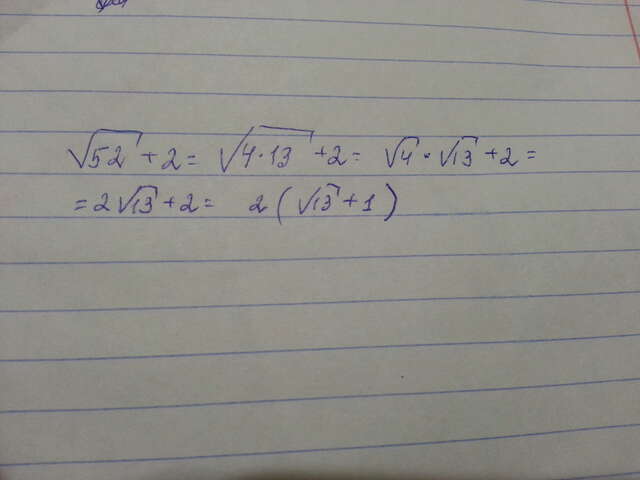 √52 + 2 = √4·13 + 2 = √4 · √13 + 2 =
= 2√13 + 2 = 2(√13 + 1)